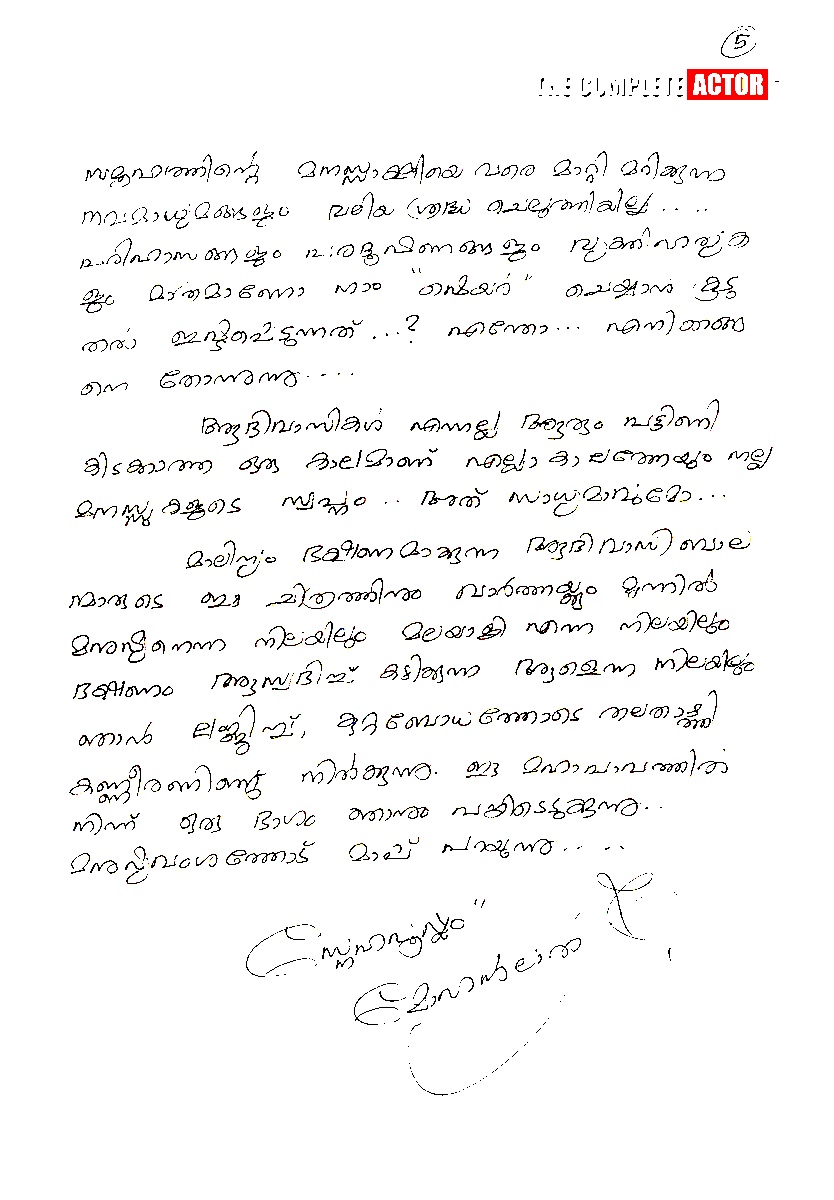 5
THE COMPLETE ACTOR
സമൂഹത്തിന്റെ മനസ്സാക്ഷിയെ വരെ മാറ്റി മറിക്കുന്ന
നവമാധ്യമങ്ങളും വലിയ ശ്രദ്ധ ചെലുത്തിയില്ല....
പരിഹാസങ്ങളും പരദൂഷണങ്ങളും വ്യക്തിഹത്യക
ളും മാത്രമാണോ നാം "ഷെയർ" ചെയ്യാൻ കൂടു
തൽ ഇഷ്ടപ്പെടുന്നത്...? എന്തോ... എനിക്കങ്ങ
നെ തോന്നുന്നു....
ആദിവാസികൾ എന്നല്ല ആരും പട്ടിണി
കിടക്കാത്ത ഒരു കാലമാണ് എല്ലാകാലത്തേയും നല്ല
മനസ്സുകളുടെ സ്വപ്നം.. അത് സാധ്യമാവുമോ...
മാലിന്യം ഭക്ഷണമാക്കുന്ന ആദിവാസി ബാല
ന്മാരുടെ ഈ ചിത്രത്തിനും വാർത്തയ്ക്കും മുന്നിൽ
മനുഷ്യനെന്ന നിലയിലും മലയാളി എന്ന നിലയിലും
ഭക്ഷണം ആസ്വദിച്ച് കഴിക്കുന്ന ആളെന്ന നിലയിലും
ഞാൻ ലജ്ജിച്ച്, കുറ്റബോധത്തോടെ തലതാഴ്ത്തി
കണ്ണീരണിഞ്ഞു നിൽക്കുന്നു. ഈ മഹാപാപത്തിൽ
നിന്ന് ഒരു ഭാഗം ഞാനും പങ്കിടെടുക്കുന്നു..
മനുഷ്യവംശത്തോട് മാപ്പ് പറയുന്നു.....
സ്നേഹപൂർവ്വം"
മോഹൻലാൽ